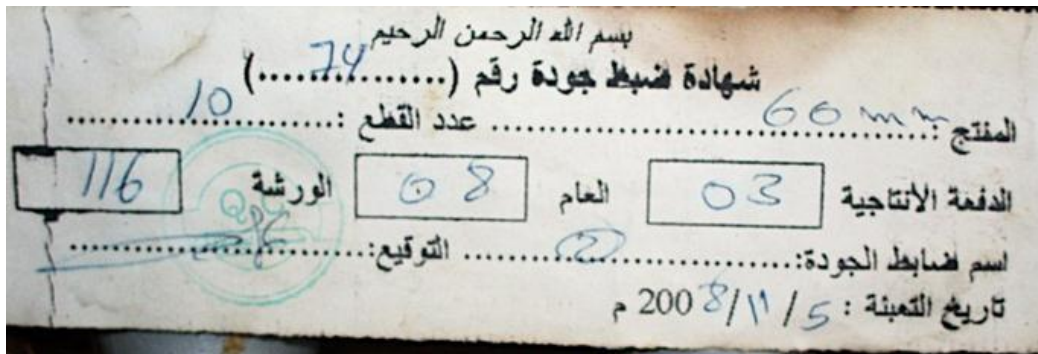 بسم الله الرحمن الرحيم
شهادة ضبط جودة رقم (.......74.......)
المفتج : 60 mm عدد القطع : 10
الدفعة الأنتاجية 03 العام 08 الورشة 116
اسم ضابط الجودة: 2 التوقيع:
تاريخ التعبئة : 5 / 11 / 2008 م